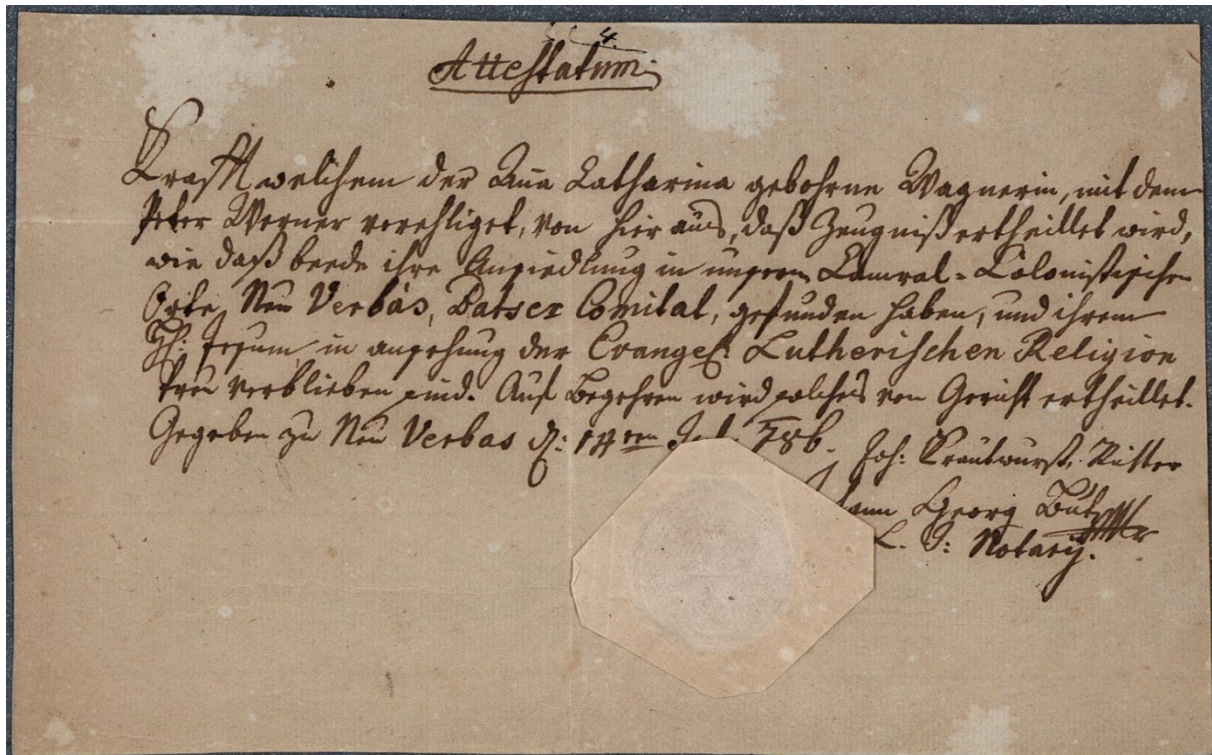 4.
Attestatum.
Krafft welchem der Aña Catharina gebohrne Wagnerin, mit dem
Peter Werner verehliget, von hier aus, daß Zeugniß ertheillet wird,
wie daß beede ihre Ansiedlung in unserm Camral-Colonistischen
Orte Neu Verbás, Batser Comitat, gefunden haben, und ihrem
Jesum in ansehung der Evangel: Lutherischen Religion
treu verblieben sind. Auf Begehren wird solches von Gericht ertheillet.
Gegeben zu Neu Verbas d: 14ten 786.
Joh: Krautwurst. Richter
Georg
Notary.